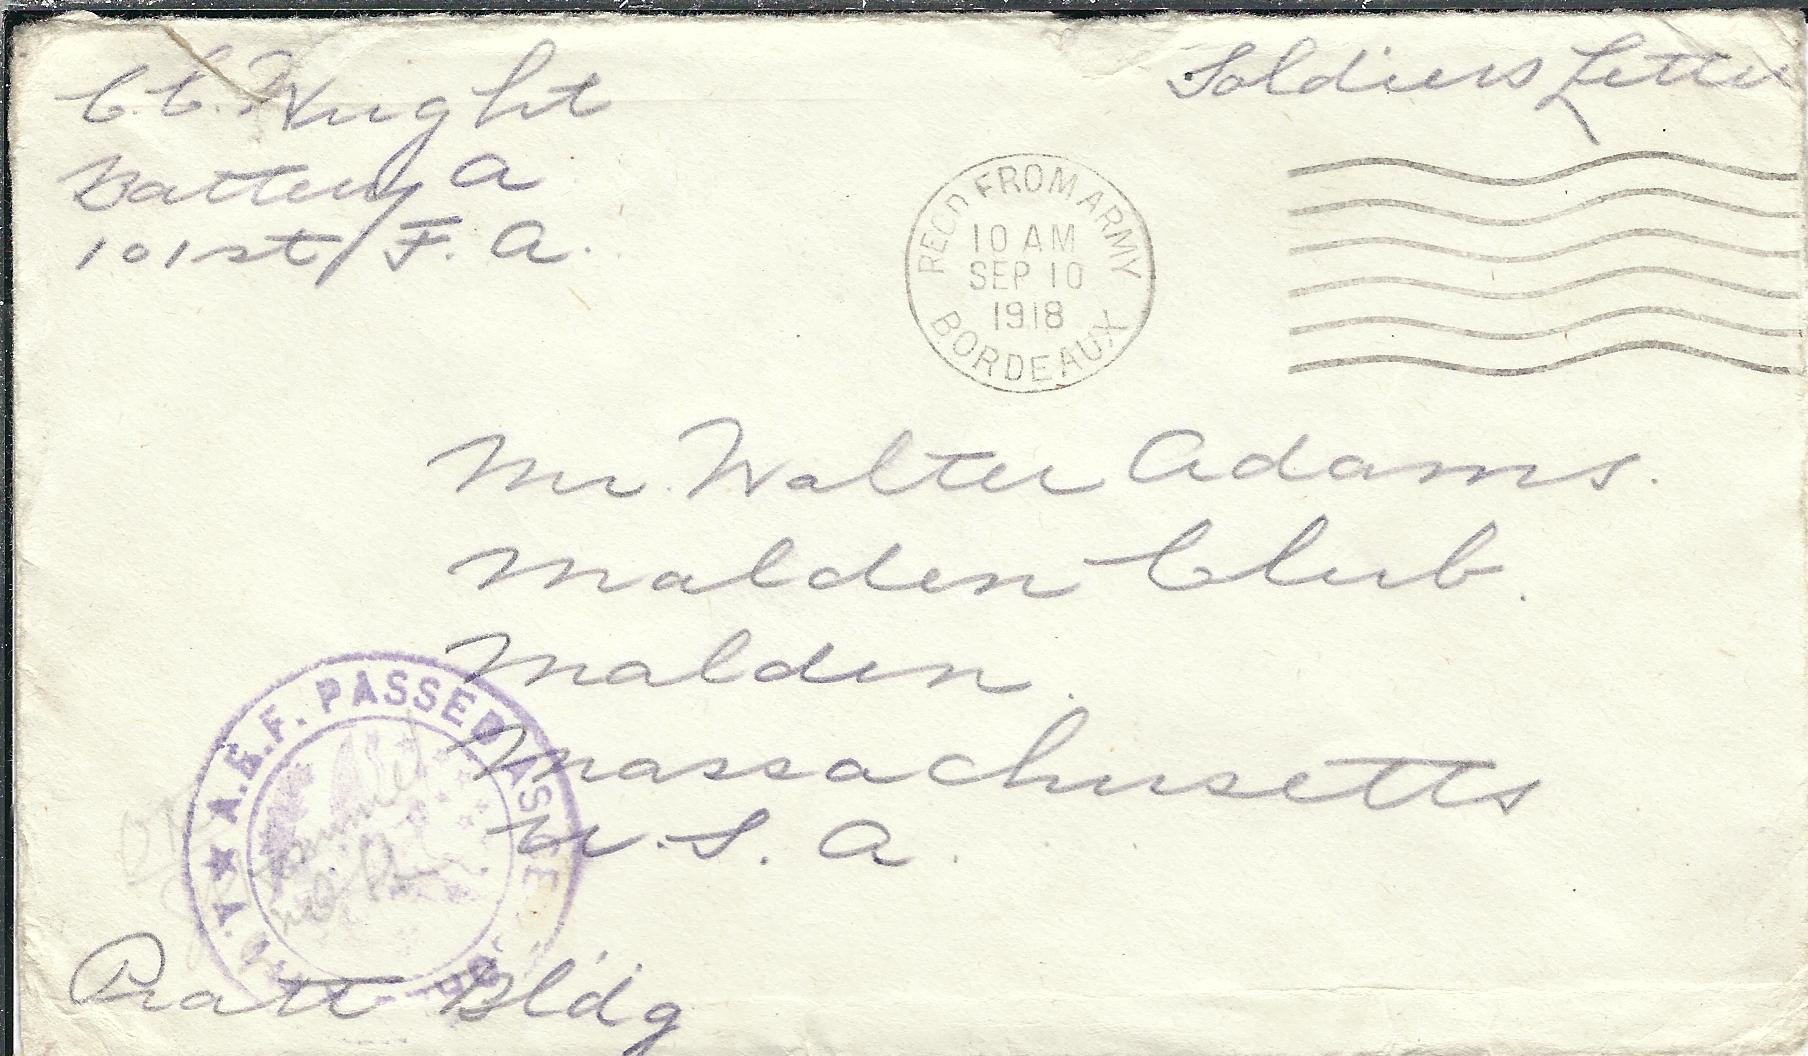 C. C. Wright
Battery A
101st F. A.
Soldiers Letter
RECD FROM ARMY
10 AM
SEP 10
1918
BORDEAUX
Mr. Walter Adams.
Malden Club.
Malden.
Massachusetts
U. S. A.
A.E.F. PASSED AS
OK
Pratt Bldg